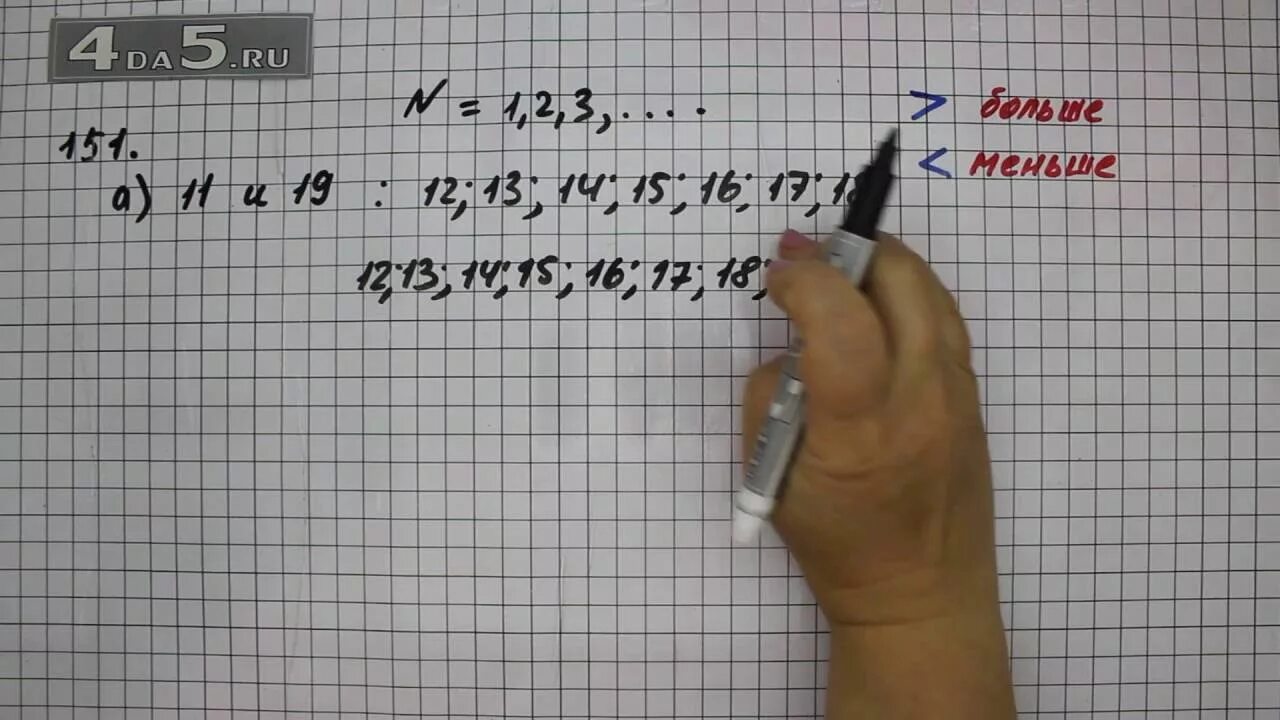 4DA5.RU
N = 1,2,3,....
> больше
151.
< меньше
а) 11 и 19 : 12; 13; 14; 15; 16; 17; 18
12; 13; 14; 15; 16; 17; 18;